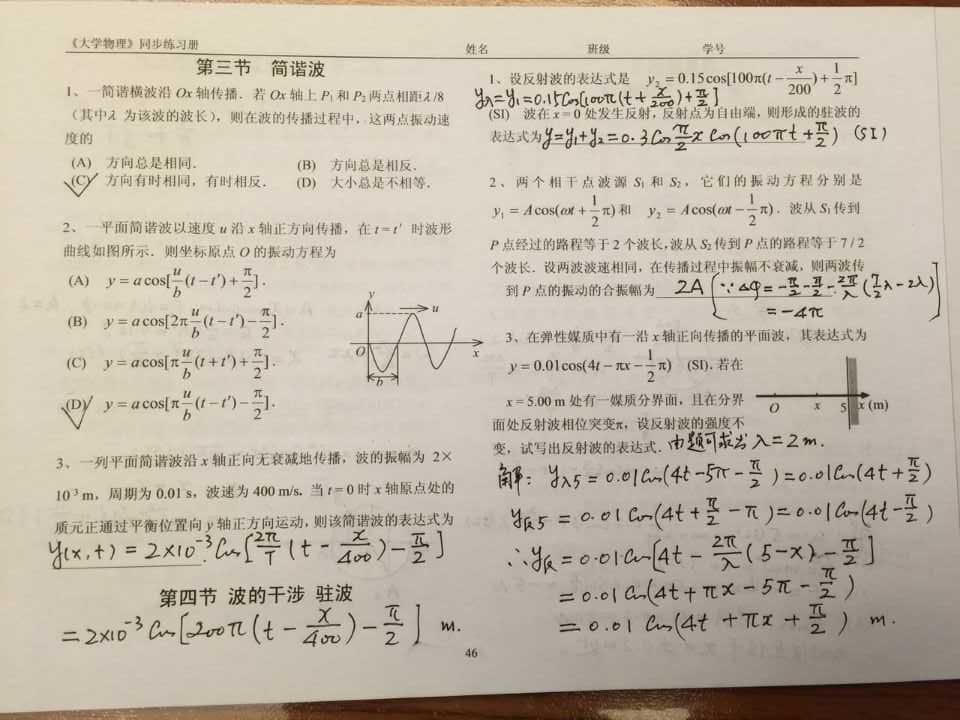 《大学物理》同步练习册 姓名 班级 学号
第三节 简谐波
1、一简谐横波沿 Ox 轴传播. 若 Ox 轴上 P₁ 和 P₂ 两点相距 λ/8
（其中 λ 为该波的波长），则在波的传播过程中，这两点振动速
度的
(A) 方向总是相同. (B) 方向总是相反.
(C) 方向有时相同，有时相反. (D) 大小总是不相等.
2、一平面简谐波以速度 u 沿 x 轴正方向传播，在 t = t′ 时波形
曲线如图所示. 则坐标原点 O 的振动方程为
(A) y = a cos[u/b (t − t′) + π/2].
(B) y = a cos[2π u/b (t − t′) − π/2].
(C) y = a cos[π u/b (t + t′) + π/2].
(D) y = a cos[π u/b (t − t′) − π/2].
y
a
u
O
x
b
3、一列平面简谐波沿 x 轴正向无衰减地传播，波的振幅为 2×
10⁻³ m，周期为 0.01 s，波速为 400 m/s. 当 t = 0 时 x 轴原点处的
质元正通过平衡位置向 y 轴正方向运动，则该简谐波的表达式为
y(x,t) = 2×10⁻³ Cos[2π/T (t − x/400) − π/2]
第四节 波的干涉 驻波
= 2×10⁻³ Cos[200π(t − x/400) − π/2] m.
1、设反射波的表达式是 y₂ = 0.15cos[100π(t − x/200) + 1/2 π]
y入 = y₁ = 0.15Cos[100π(t + x/200) + π/2]
(SI) 波在 x = 0 处发生反射，反射点为自由端，则形成的驻波的
表达式为 y = y₁ + y₂ = 0.3 Cos π/2 x Cos(100πt + π/2) (SI)
2、两个相干点波源 S₁ 和 S₂，它们的振动方程分别是
y₁ = A cos(ωt + 1/2 π) 和 y₂ = A cos(ωt − 1/2 π). 波从 S₁ 传到
P 点经过的路程等于 2 个波长，波从 S₂ 传到 P 点的路程等于 7 / 2
个波长. 设两波波速相同，在传播过程中振幅不衰减，则两波传
到 P 点的振动的合振幅为 2A [∵ Δφ = −π/2 − π/2 − 2π/λ (7/2 λ − 2λ)
= −4π]
3、在弹性媒质中有一沿 x 轴正向传播的平面波，其表达式为
y = 0.01cos(4t − πx − 1/2 π) (SI). 若在
x = 5.00 m 处有一媒质分界面，且在分界
面处反射波相位突变π，设反射波的强度不
变，试写出反射波的表达式. 由题可求出 λ = 2 m.
O x 5 x (m)
解: y入5 = 0.01 Cos(4t − 5π − π/2) = 0.01 Cos(4t + π/2)
y反5 = 0.01 Cos(4t + π/2 − π) = 0.01 Cos(4t − π/2)
∴ y反 = 0.01 Cos[4t − 2π/λ (5 − x) − π/2]
= 0.01 Cos(4t + πx − 5π − π/2)
= 0.01 Cos(4t + πx + π/2) m.
46